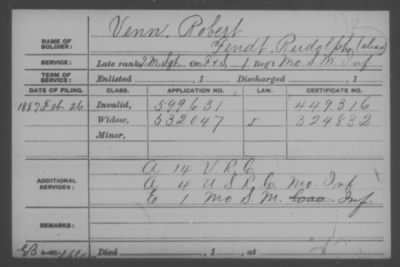 NAME OF SOLDIER: Venn, Robert
Fendt, Rudolph (alias)
SERVICE: Late rank Q.M. Sgt. Co. F & S, 1 Reg't Mo. S. M. Inf
TERM OF SERVICE: Enlisted , 1 Discharged , 1
DATE OF FILING. CLASS. APPLICATION NO. LAW. CERTIFICATE NO.
1887 Feb. 26 Invalid, 599631 449.316
Widow, 532047 324832
Minor,
ADDITIONAL SERVICES: A 14 V. R. C.
A 4 U S R Co Mo Inf
E 1 Mo S. M. Inf.
REMARKS:
Died , 1 , at